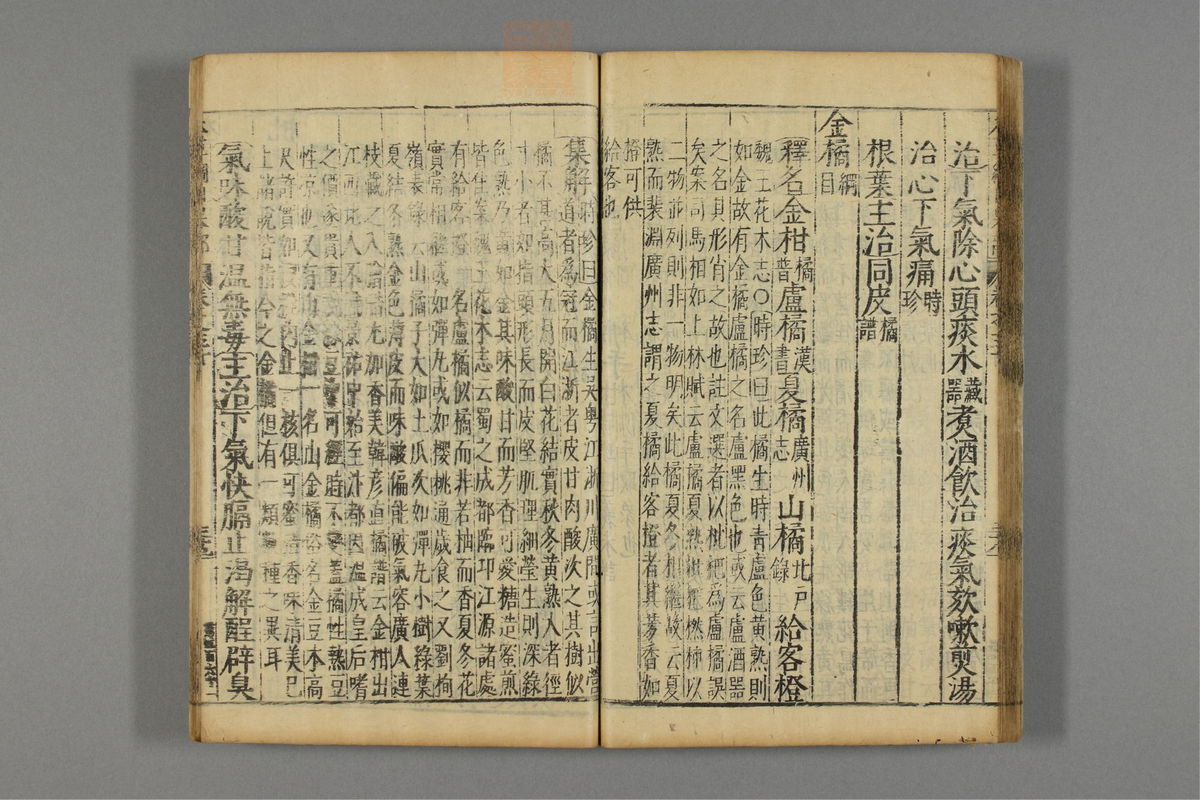 治下氣除心頭痰水藏器煮酒飲治痰氣欬嗽煎湯
治心下氣痛時珍
根葉主治同皮橘譜
金橘綱目
釋名金柑橘譜盧橘漢書夏橘廣州志山橘北戶錄給客橙
魏王花木志〇時珍曰此橘生時青盧色黃熟則
如金故有金橘盧橘之名盧黑色也或云盧酒器
之名其形肖之故也註文選者以枇杷爲盧橘誤
矣案司馬相如上林賦云盧橘夏熟枇杷橪柿以
二物並列則非一物明矣此橘夏冬相繼故云夏
熟而裴淵廣州志謂之夏橘給客橙者其芬香如
橙可供
給客也
集解時珍曰金橘生吳粵江浙川廣間或言出營
道者爲冠而江浙者皮甘肉酸次之其樹似
橘不甚高大五月開白花結實秋冬黃熟大者徑
寸小者如指頭形長而皮堅肌理細瑩生則深綠
色熟乃黃如金其味酸甘而芳香可愛糖造蜜煎
皆佳案魏王花木志云蜀之成都臨邛江源諸處
有給客橙一名盧橘似橘而非若柚而香夏冬花
實常相繼或如彈丸或如櫻桃通歲食之又劉恂
嶺表錄云山橘子大如土瓜次如彈丸小樹綠葉
夏結冬熟金色薄皮而味酸偏能破氣容廣人連
枝藏之入膾醋尤加香美韓彥直橘譜云金柑出
江西北人不識景祐中始至汴都因溫成皇后嗜
之價遂貴重藏綠豆中可經時不變蓋橘性熱豆
性涼也又有山金柑一名山金橘俗名金豆木高
尺許實如櫻桃內止一核俱可蜜漬香味清美已
上諸說皆指今之金橘但有一類數種之異耳
氣味酸甘溫無毒主治下氣快膈止渴解酲辟臭